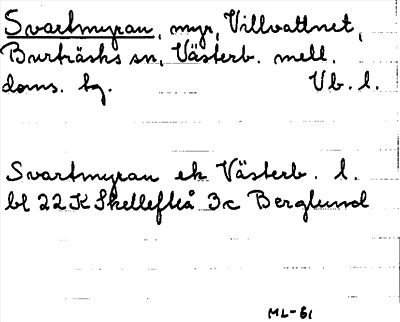 Svartmyran, myr, Villvattnet,
Burträsks sn, Västerb. mell.
doms. tg. Vb. l.
Svartmyran ek Västerb. l.
bl 22 K Skellefteå 3c Berglund
ML-61